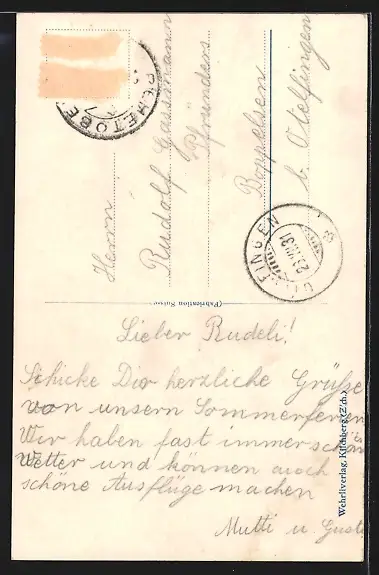 Herrn
Rudolf Gassmann
Pfründers
Boppelsen
b. Otelfingen
REHETOBEL
OTELFINGEN
23.VII.31
(Fabrication Suisse)
Lieber Rudeli!
Schicke Dir herzliche Grüsse
von unsern Sommerferien
Wir haben fast immer schön
Wetter und können auch
schöne Ausflüge machen
Mutti u. Gusti
Wehrliverlag, Kilchberg (Zch.)